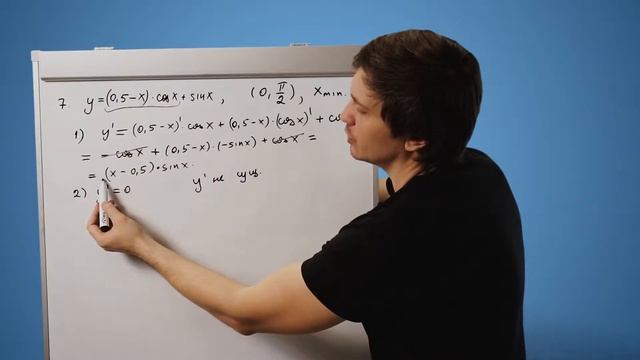 7. y = (0,5-x)·cosx + sinx , (0, π/2), x min.
1) y' = (0,5-x)'·cosx + (0,5-x)·(cosx)' + co
= -cosx + (0,5-x)·(-sinx) + cosx =
= (x-0,5)·sinx.
2) =0 y' не сущ.